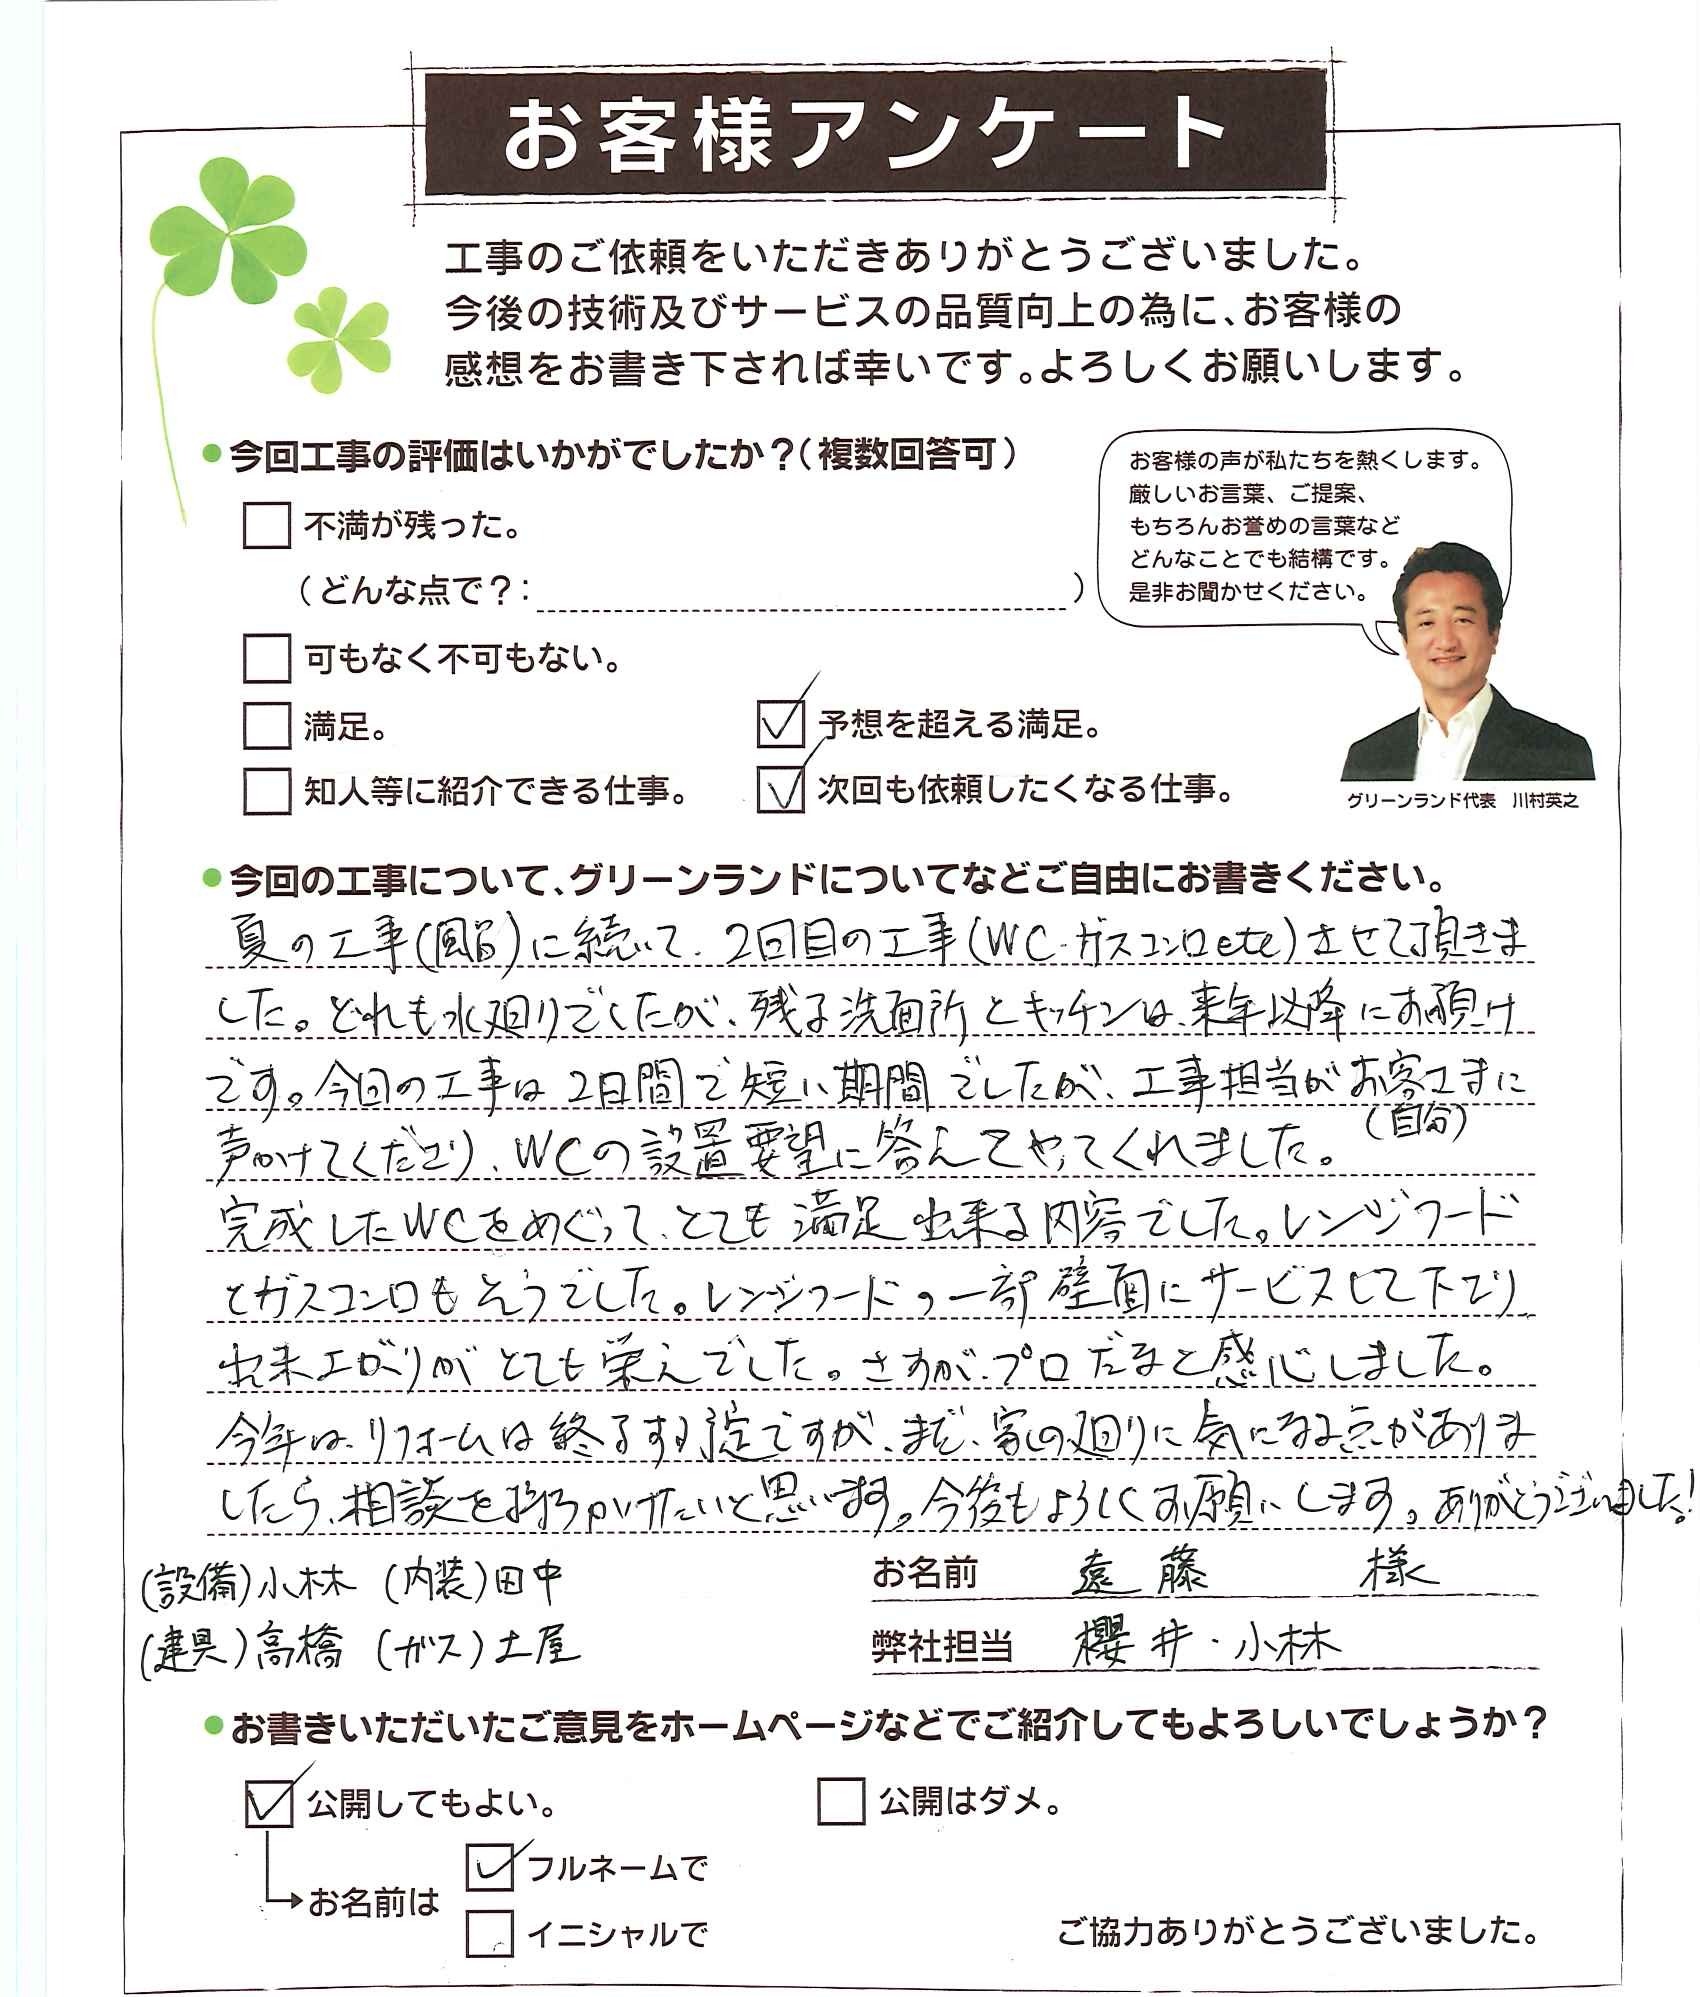 お客様アンケート
工事のご依頼をいただきありがとうございました。
今後の技術及びサービスの品質向上の為に、お客様の
感想をお書き下されば幸いです。よろしくお願いします。
●今回工事の評価はいかがでしたか？（複数回答可）
不満が残った。
（どんな点で？： ）
可もなく不可もない。
満足。
予想を超える満足。
知人等に紹介できる仕事。
次回も依頼したくなる仕事。
お客様の声が私たちを熱くします。
厳しいお言葉、ご提案、
もちろんお誉めの言葉など
どんなことでも結構です。
是非お聞かせください。
グリーンランド代表　川村英之
●今回の工事について、グリーンランドについてなどご自由にお書きください。
夏の工事(風呂)に続いて、2回目の工事(WC・ガスコンロetc)させて頂きま
した。どれも水廻りでしたが、残る洗面所とキッチンは、来年以降にお預け
です。今回の工事は2日間で短い期間でしたが、工事担当がお客さまに
(自分)
声かけてくださり、WCの設置要望に答えてやってくれました。
完成したWCをめぐって、とても満足出来る内容でした。レンジフード
とガスコンロもそうでした。レンジフードの一部壁面にサービスして下さり、
出来上がりがとても栄えでした。さすが、プロだなと感心しました。
今年は、リフォームは終了する予定ですが、まだ、家の廻りに気になる点がありま
したら、相談を持ちかけたいと思います。今後もよろしくお願いします。ありがとうございました！
(設備)小林 (内装)田中
(建具)高橋 (ガス)土屋
お名前 遠藤 様
弊社担当 櫻井・小林
●お書きいただいたご意見をホームページなどでご紹介してもよろしいでしょうか？
公開してもよい。
公開はダメ。
お名前は
フルネームで
イニシャルで
ご協力ありがとうございました。